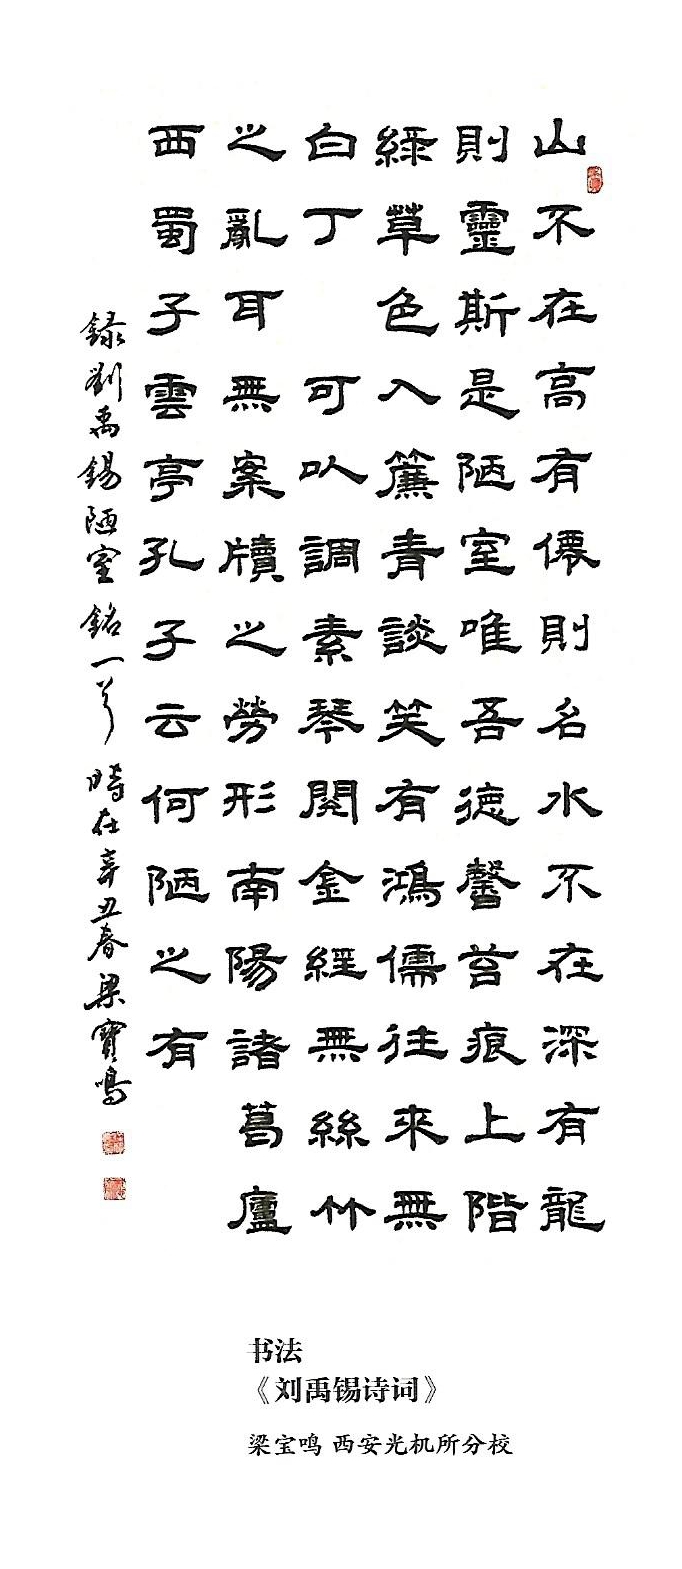 山不在高有僊則名水不在深有龍
則靈斯是陋室唯吾德馨苔痕上階
綠草色入簾青談笑有鴻儒往來無
白丁 可㕥調素琴閱金經無絲竹
之亂耳無案牘之勞形南陽諸葛廬
西蜀子雲亭孔子云何陋之有
録劉禹錫陋室銘一首 時在辛丑春 梁寶鳴
书法
《刘禹锡诗词》
梁宝鸣 西安光机所分校